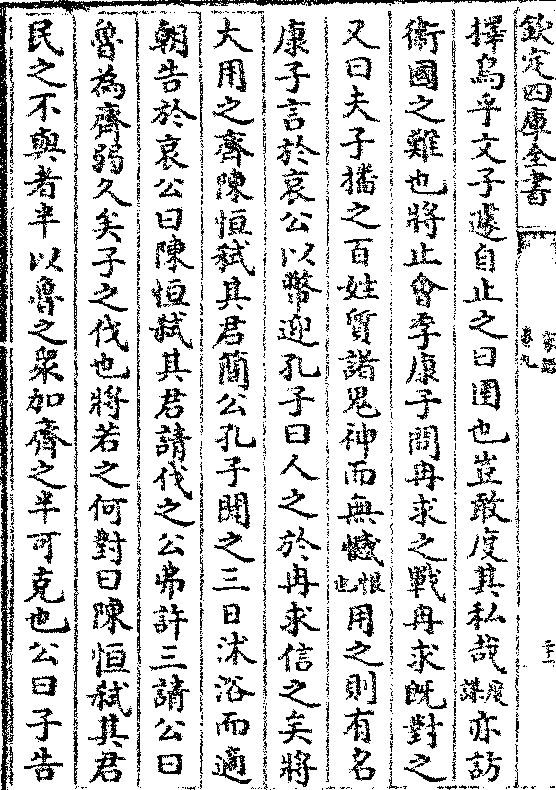 欽定四庫全書
擇烏乎文子遽自止之曰圉也豈敢度其私哉度謀亦訪
衛國之難也將止會季康子問冉求之戰冉求既對之
又曰夫子播之百姓質諸鬼神而無憾恨也用之則有名
康子言於哀公以幣迎孔子曰人之於冉求信之矣將
大用之齊陳恒弑其君簡公孔子聞之三日沐浴而適
朝告於哀公曰陳恒弑其君請伐之公弗許三請公曰
魯為齊弱久矣子之伐也將若之何對曰陳恒弑其君
民之不與者半以魯之衆加齊之半可克也公曰子告